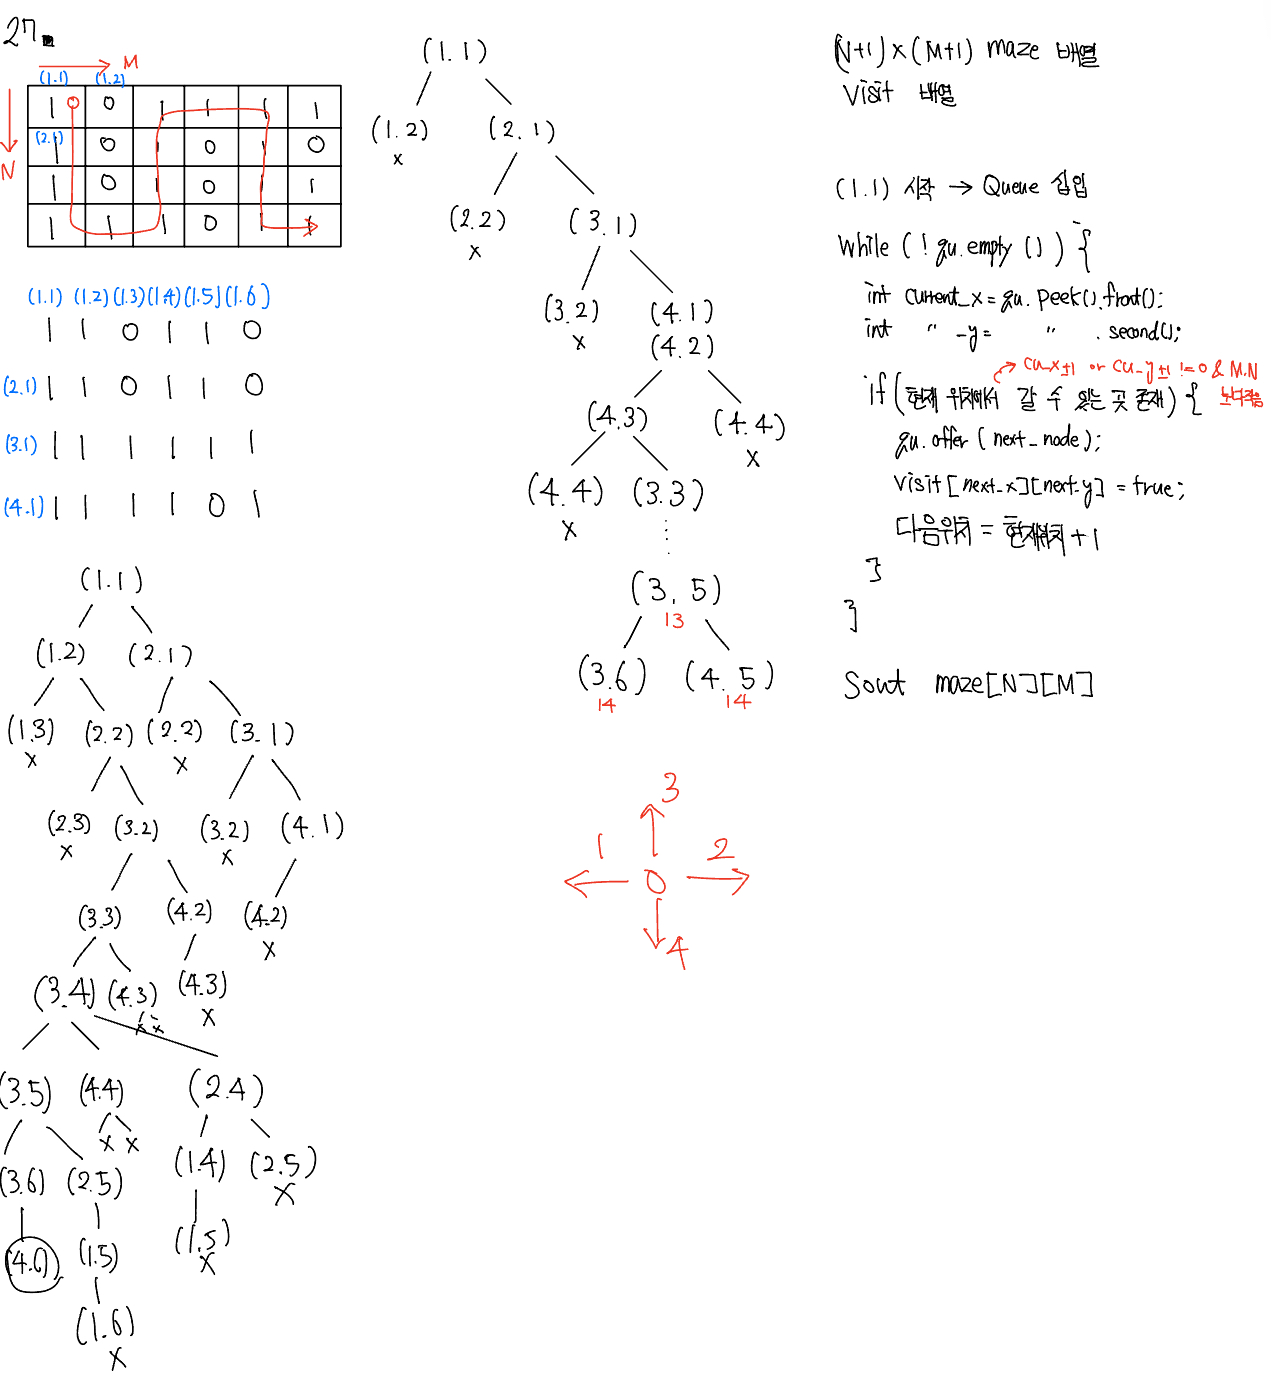 27.
M
(1.1) (1.2)
1 0 1 1 1 1
(2.1)
1 0 1 0 1 0
N
1 0 1 0 1 1
1 1 1 0 1 1
(1.1) (1.2) (1.3) (1.4) (1.5) (1.6)
1 1 0 1 1 0
(2.1) 1 1 0 1 1 0
(3.1) 1 1 1 1 1 1
(4.1) 1 1 1 1 0 1
(1.1)
(1.2) (2.1)
(1.3) (2.2) (2.2) (3.1)
x x
(2.3) (3.2) (3.2) (4.1)
x x
(3.3) (4.2) (4.2)
x
(3.4) (4.3) (4.3)
x x x
(3.5) (4.4) (2.4)
x x
(3.6) (2.5) (1.4) (2.5)
x
(4.6) (1.5) (1.5)
x
(1.6)
x
(1.1)
(1.2) (2.1)
x
(2.2) (3.1)
x
(3.2) (4.1)
x
(4.2)
(4.3) (4.4)
x
(4.4) (3.3)
x
(3.5)
13
(3.6) (4.5)
14 14
3
1 0 2
4
(N+1) x (M+1) maze 배열
Visit 배열
(1.1) 시작 → Queue 삽입
While ( ! qu.empty () ) {
int current_x = qu. Peek().front();
int " _y = " . second();
→ cu_x±1 or cu_y±1 != 0 & M.N
보다작음
if (현재 위치에서 갈 수 있는 곳 존재) {
qu.offer ( next_node);
visit [next_x][next_y] = true;
다음위치 = 현재위치 + 1
}
}
Sout maze[N][M]